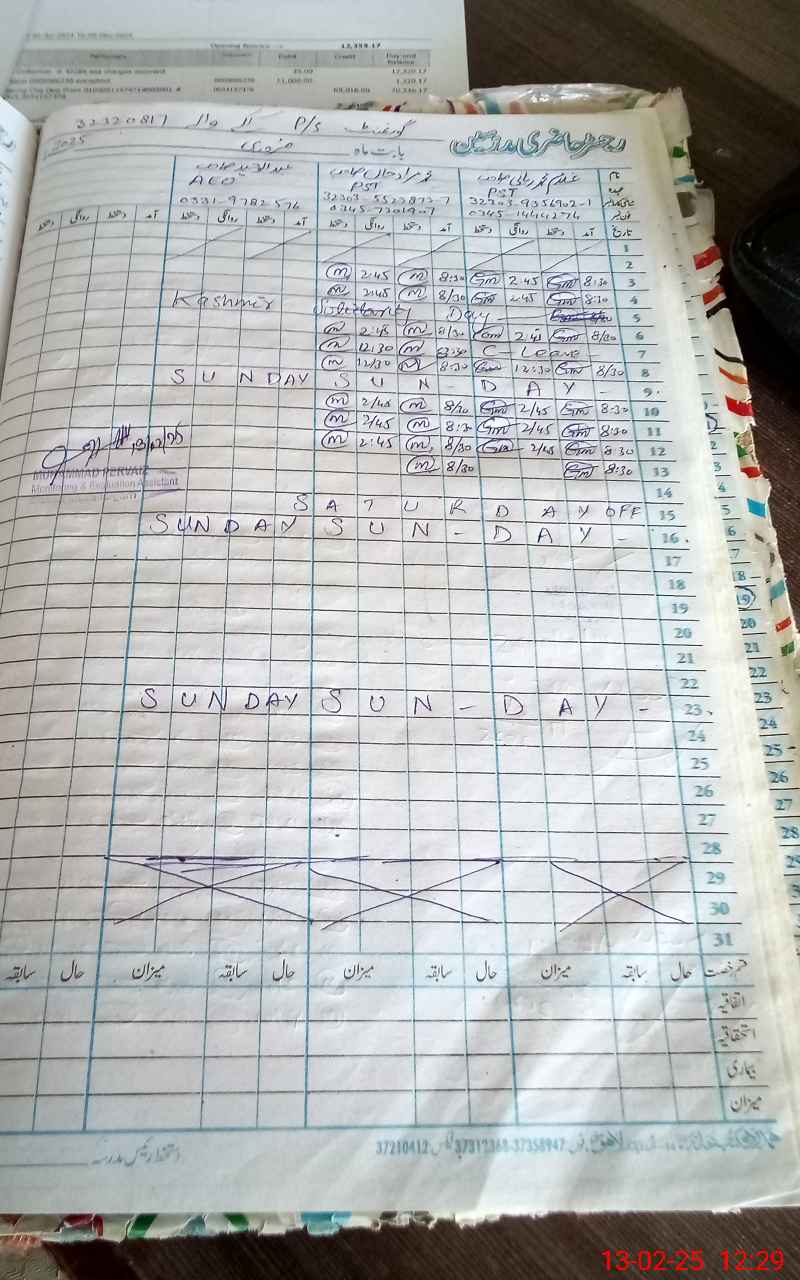 Opening Balance
12,359.17
Particulars Debit Credit Day-end Balance
رجسٹر حاضری مدرسین
گورنمنٹ P/S والہ 32320817
بابت ماہ فروری 2025
نام
PST PST AEO
32303-9356902-1 32303-5523872-7 0331-9782576
0345-1444274 0345-7201907
تاریخ آمد دستخط روانگی دستخط آمد دستخط روانگی دستخط آمد دستخط روانگی دستخط آمد دستخط روانگی دستخط
1
2
m 2:45 m 8:30 Gm 2:45 Gm 8:30 3
m 2:45 m 8/30 Gm 2:45 Gm 8:30 4
Kashmir Solidarity Day - 5
m 2:45 m 8/30 Gm 2:45 Gm 8/30 6
m 12:30 m 8:30 C - Leave - 7
m 12/30 m 8:30 Gm 12:30 Gm 8/30 8
SUNDAY SUN - DAY - 9
m 2/45 m 8/30 Gm 2/45 Gm 8:30 10
m 2/45 m 8:30 Gm 2/45 Gm 8:30 11
m 2:45 m 8/30 Gm 2/45 Gm 8:30 12
m 8/30 Gm 8:30 13
13/02/25
MUHAMMAD PERVAIZ
Monitoring & Evaluation Assistant
14
SATURDAY OFF 15
SUNDAY SUN - DAY - 16
17
18
19
20
21
22
SUNDAY SUN - DAY - 23
24
25
26
27
28
29
30
31
قسم رخصت حال سابقہ میزان حال سابقہ میزان حال سابقہ میزان حال سابقہ
اتفاقیہ
استحقاقیہ
بیماری
میزان
37210412 37312368-37358947
دستخط رئیس مدرسہ
13-02-25 12:29